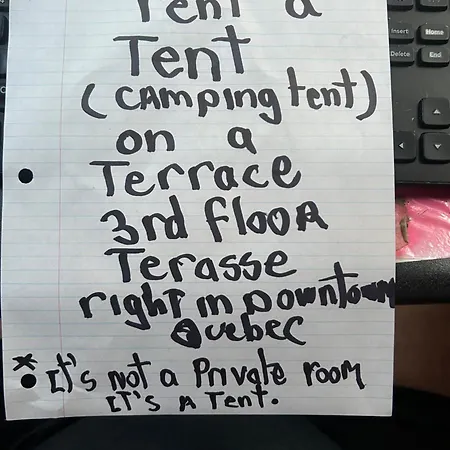 Rent a
Tent
(camping tent)
on a
Terrace
3rd flooR
Terasse
right in Downtown
Quebec
* It's not a Private room
It's a Tent.
Insert Home
Delete End